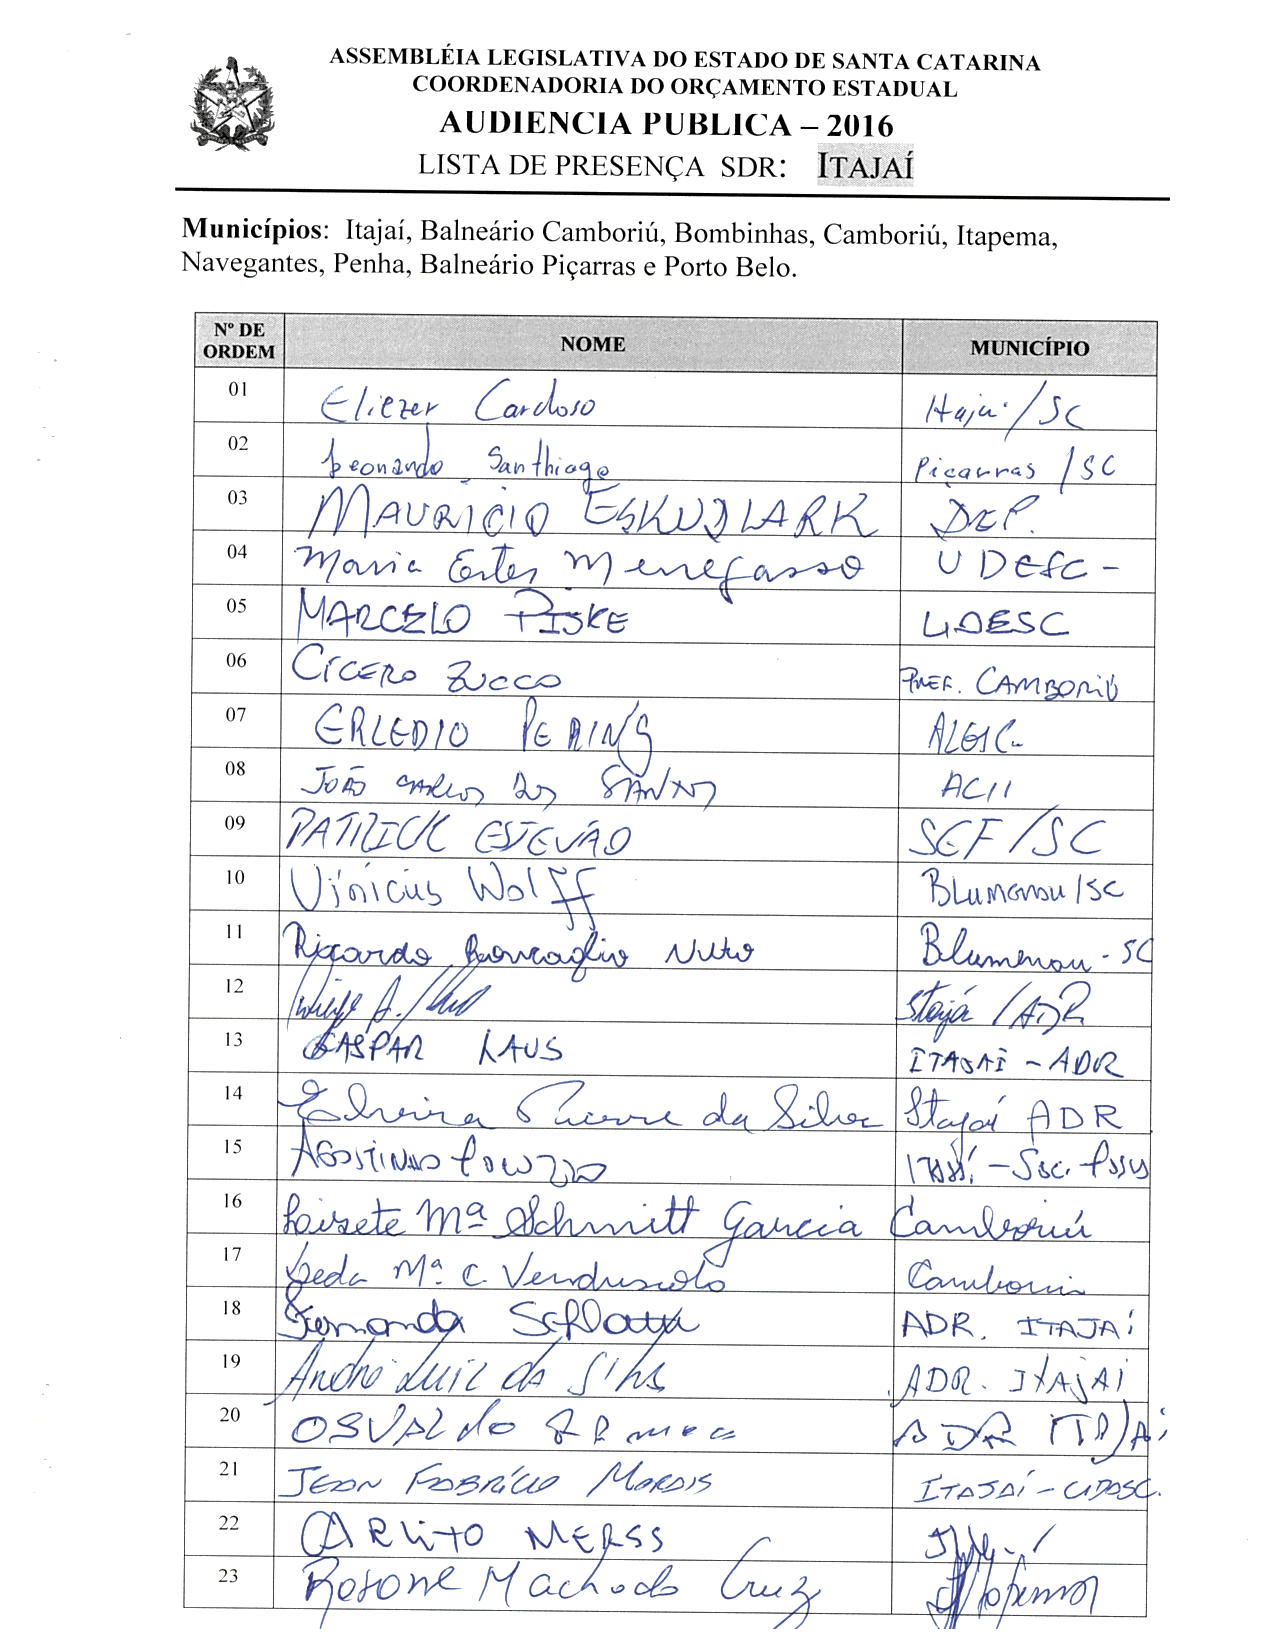 ASSEMBLÉIA LEGISLATIVA DO ESTADO DE SANTA CATARINA
COORDENADORIA DO ORÇAMENTO ESTADUAL
AUDIENCIA PUBLICA – 2016
LISTA DE PRESENÇA SDR: ITAJAÍ
Municípios: Itajaí, Balneário Camboriú, Bombinhas, Camboriú, Itapema,
Navegantes, Penha, Balneário Piçarras e Porto Belo.
Nº DE ORDEM NOME MUNICÍPIO
01 Eliezer Cardoso Itajaí/SC
02 Leonardo Santhiago Piçarras /SC
03 MAURICIO ESKUDLARK DEP.
04 Maria Ester Menegasso UDESC -
05 MARCELO PISKE UDESC
06 CÍCERO ZUCCO PREF. CAMBORIÚ
07 ERLEDIO PERING ALESC
08 JOÃO CARLOS DOS SANTOS ACII
09 PATRICK ESTEVÃO SEF/SC
10 Vinicius Wolff Blumenau/SC
11 Riccardo Neto Blumenau - SC
12 A. Itajaí /ADR
13 GASPAR LAUS ITAJAÍ - ADR
14 da Silva Itajaí ADR
15 AGOSTINHO
16 Mª Schmitt Garcia Camboriú
17 Leda Mª C. Vendruscolo Camboriú
18 Fernanda ADR. ITAJAÍ
19 André Luiz da Silva ADR. ITAJAI
20 OSVALdo ADR ITAJAí
21 JEAN FABRÍCIO MORAIS ITAJAÍ - UDESC.
22 CARLITO MERSS
23 Rosane Machado Cruz Itapema